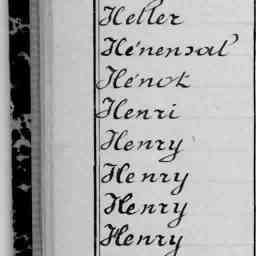 Heller
Hénensal
Hénot
Henri
Henry
Henry
Henry
Henry